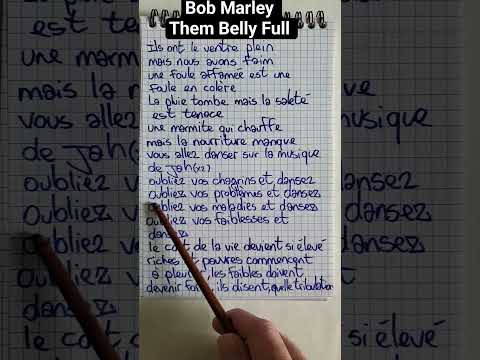 Bob Marley
Them Belly Full
Ils ont le ventre plein
mais nous avons faim
une foule affamée est une
foule en colère
La pluie tombe mais la saleté
est tenace
une marmite qui chauffe
mais la nourriture manque
vous allez danser sur la musique
de Jah (x2)
oubliez vos chagrins et dansez
oubliez vos problèmes et dansez
oubliez vos maladies et dansez
oubliez vos faiblesses et
dansez
le coût de la vie devient si élevé
riches et pauvres commencent
à pleurer, les faibles doivent
devenir forts, ils disent, quelle tribulation